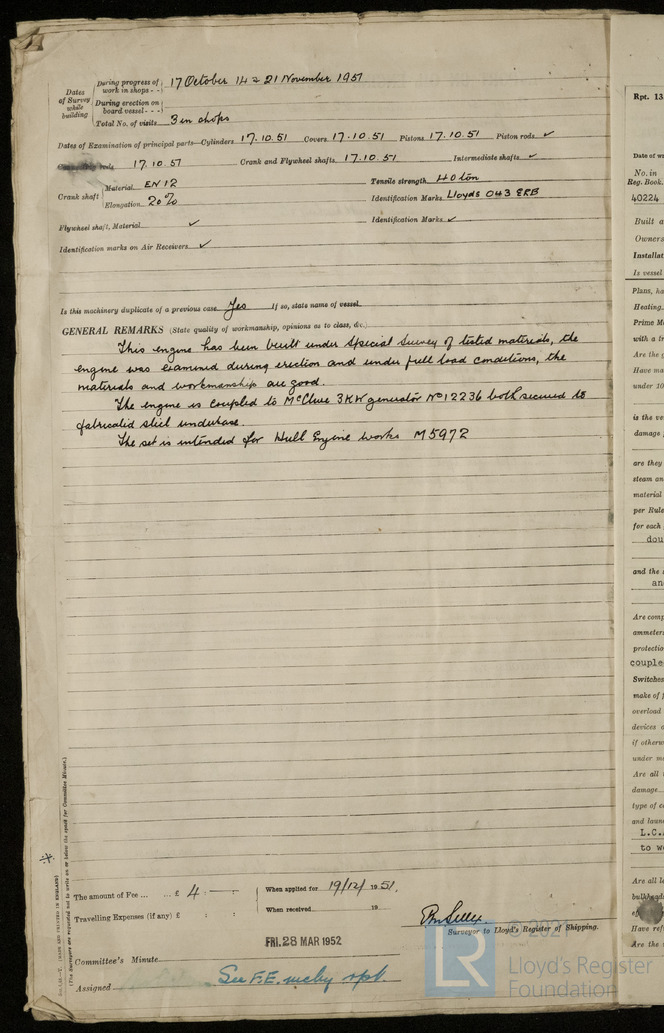 During progress of work in shops - - 17 October 14 & 21 November 1951
Dates of Survey while building
During erection on board vessel - - -
Total No. of visits 3 in shops
Dates of Examination of principal parts—Cylinders 17.10.51 Covers 17.10.51 Pistons 17.10.51 Piston rods ✓
rods 17.10.51 Crank and Flywheel shafts 17.10.51 Intermediate shafts ✓
Crank shaft Material EN 12 Tensile strength 40 ton
Elongation 20% Identification Marks Lloyds 043 ERB
Flywheel shaft, Material ✓ Identification Marks ✓
Identification marks on Air Receivers ✓
Is this machinery duplicate of a previous case Yes If so, state name of vessel
GENERAL REMARKS (State quality of workmanship, opinions as to class, &c.)
This engine has been built under Special Survey of tested materials, the
engine was examined during erection and under full load conditions, the
materials and workmanship are good.
The engine is coupled to McClure 3KW generator No 12236 both secured to
fabricated steel underbase.
The set is intended for Hull Engine works M5972
The amount of Fee ... £ 4 : — : When applied for 19/12/ 1951.
Travelling Expenses (if any) £ : : When received 19
Surveyor to Lloyd's Register of Shipping.
FRI. 28 MAR 1952
Committee's Minute
Assigned See F.E. rpt.
(MADE AND PRINTED IN ENGLAND)
(The Surveyors are requested not to write on or below the space for Committee Minute.)
Rpt. 13
Date of
No. in
Reg. Book.
40224
Built a
Owners
Installat
Is vessel
Plans, ha
Heating,
Prime M
with a tr
Are the g
Have ma
under 10
is the ve
damage
are they
steam an
material
per Rule
for each
dou
and the s
an
Are comp
ammeters
protectio
couple
Switches
make of f
overload
devices
if otherw
under m
Are all
damage
type of c
and laun
L.C.
to w
Are all l
bulkheads
Have ref
Are the
© 2021
LR
Lloyd's Register
Foundation